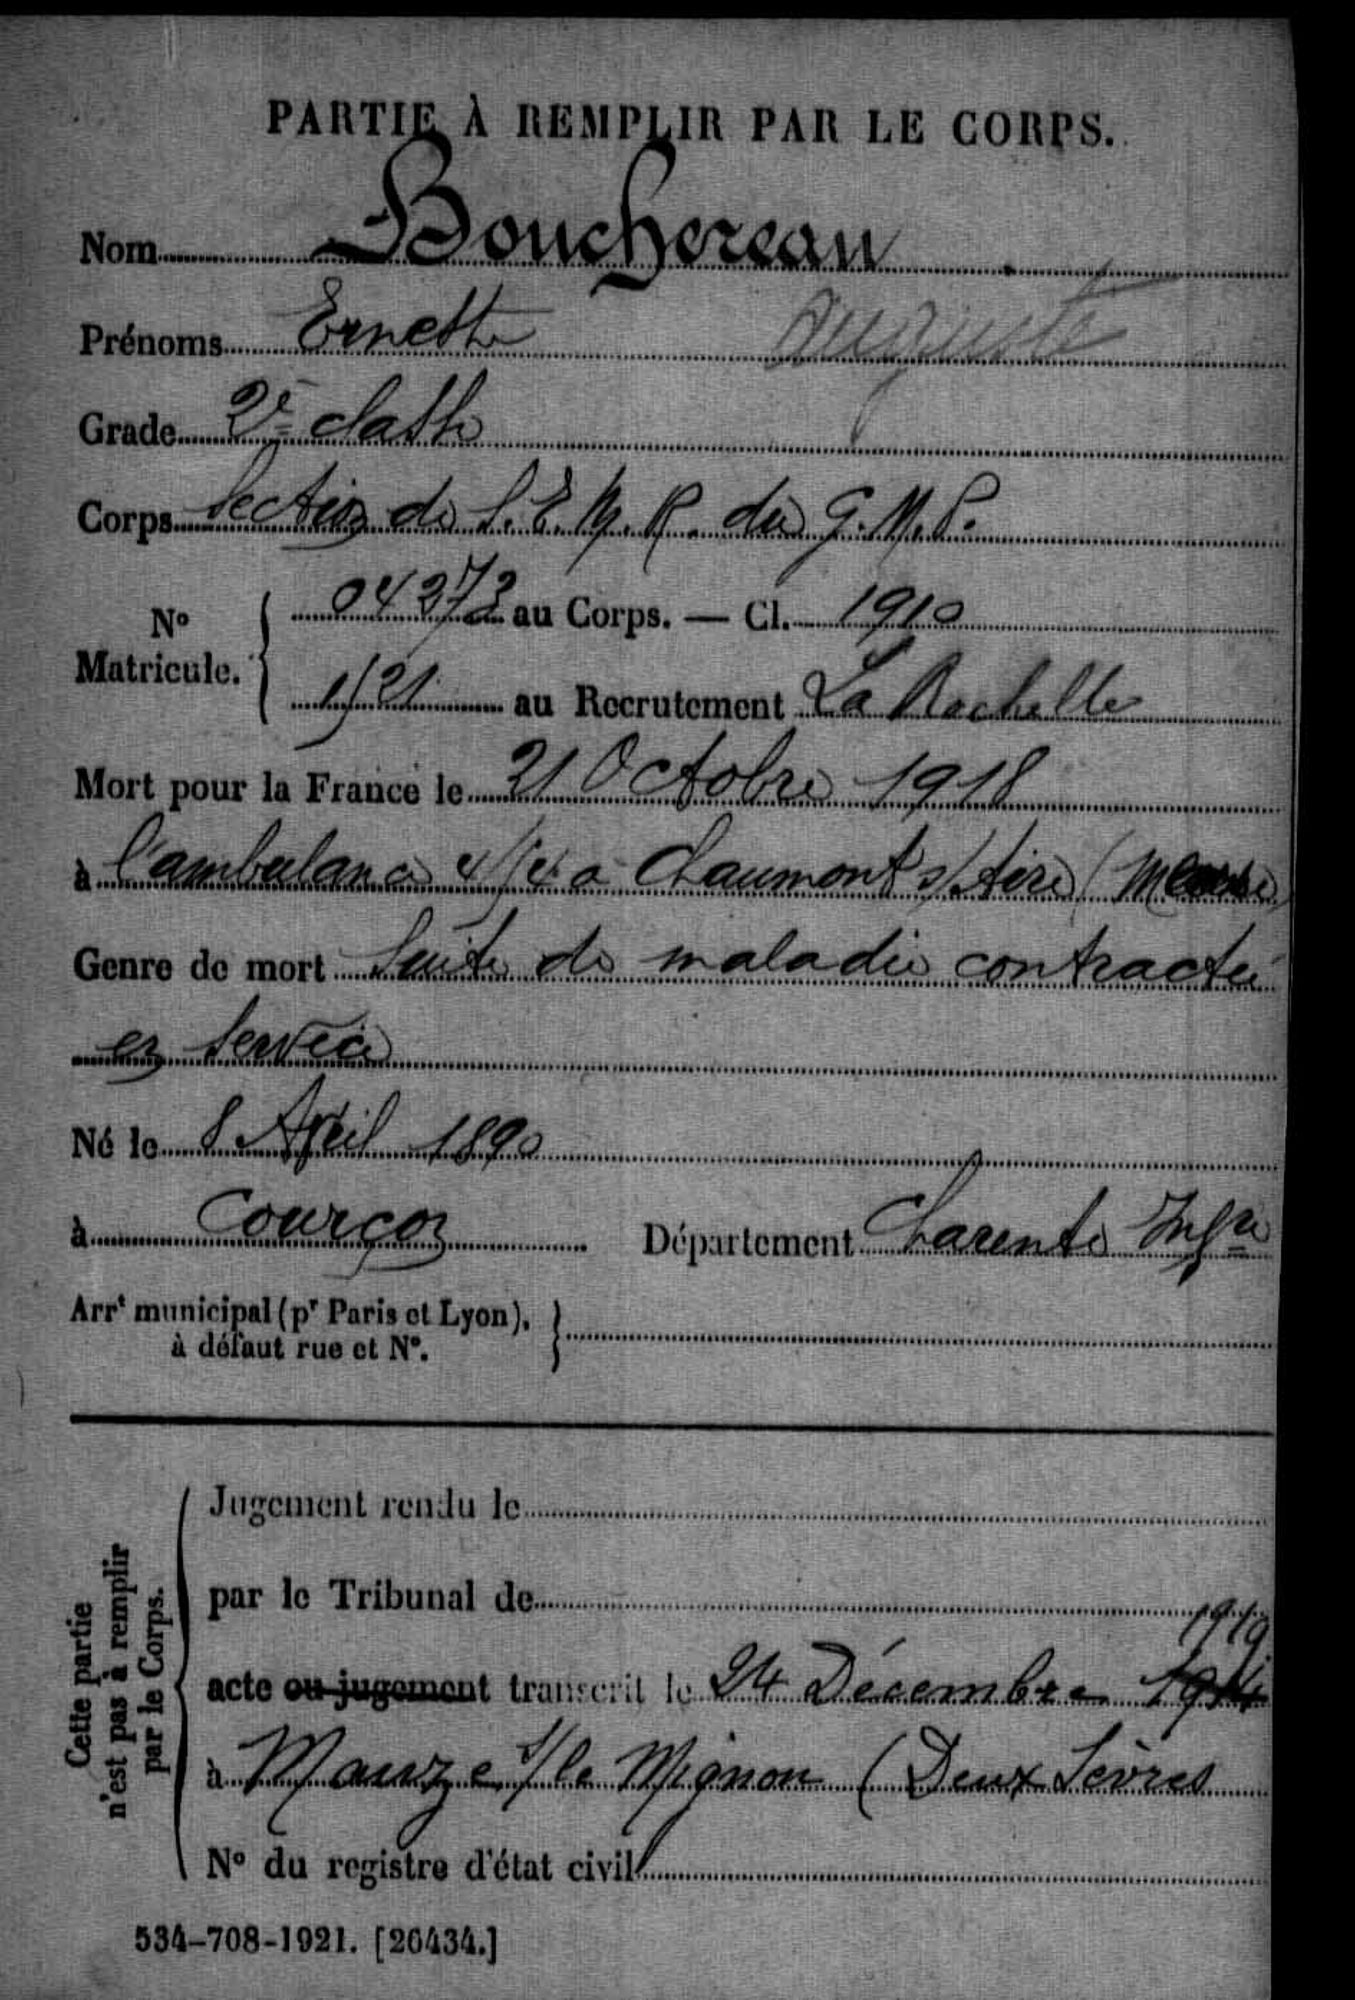 PARTIE À REMPLIR PAR LE CORPS.
Nom Bouchereau
Prénoms Ernest Auguste
Grade 2e classe
Corps Section de S. E. M. R. du G. M. P.
No Matricule. 04272 au Corps. — Cl. 1910
1521 au Recrutement La Rochelle
Mort pour la France le 21 Octobre 1918
à l'ambulance 4/4 à Chaumont s/ Aire (Meuse)
Genre de mort Suite de maladie contractée
en service
Né le 8 Avril 1890
à Courçon Département Charente Infre
Arrt municipal (pr Paris et Lyon),
à défaut rue et No.
Cette partie
n'est pas à remplir
par le Corps.
Jugement rendu le
par le Tribunal de
1919
acte ou jugement transcrit le 24 Décembre
à Mauze s/ le Mignon (Deux Sèvres
No du registre d'état civil
534-708-1921. [26434.]